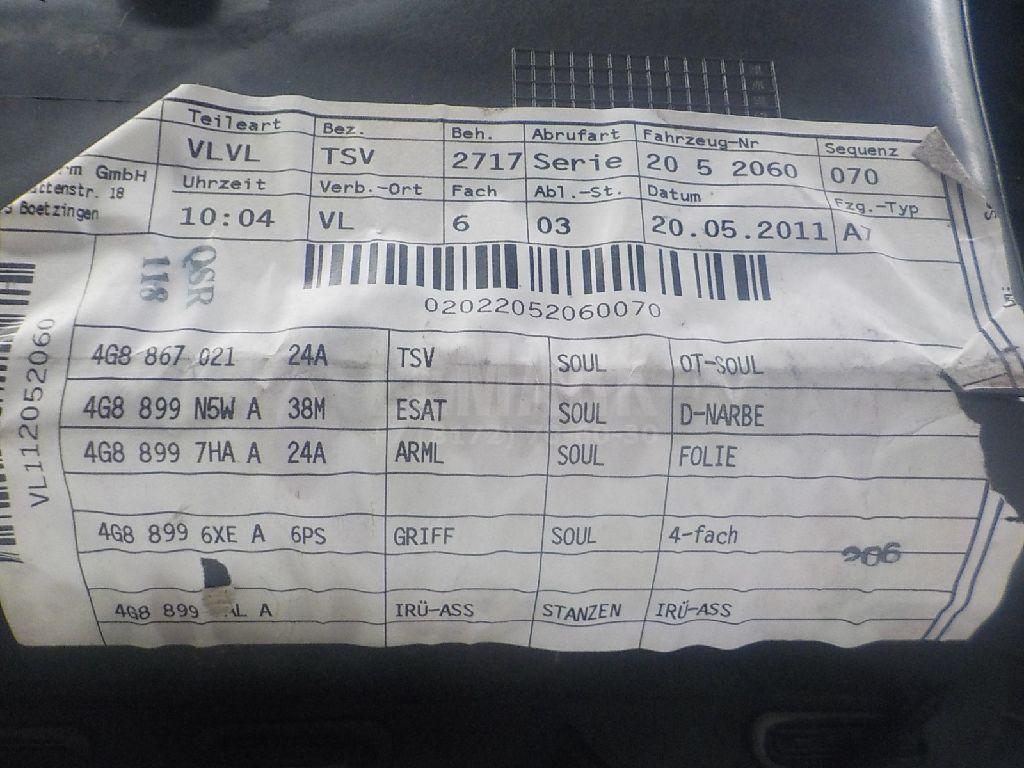 Teileart Bez. Beh. Abrufart Fahrzeug-Nr Sequenz
VLVL TSV 2717 Serie 20 5 2060 070
GmbH
18
Boetzingen
Uhrzeit Verb.-Ort Fach Abl.-St. Datum Fzg.-Typ
10:04 VL 6 03 20.05.2011 A7
QSR
118
02022052060070
VL11205206
4G8 867 021 24A TSV SOUL OT-SOUL
4G8 899 N5W A 38M ESAT SOUL D-NARBE
4G8 899 7HA A 24A ARML SOUL FOLIE
4G8 899 6XE A 6PS GRIFF SOUL 4-fach
206
4G8 899 A IRÜ-ASS STANZEN IRÜ-ASS